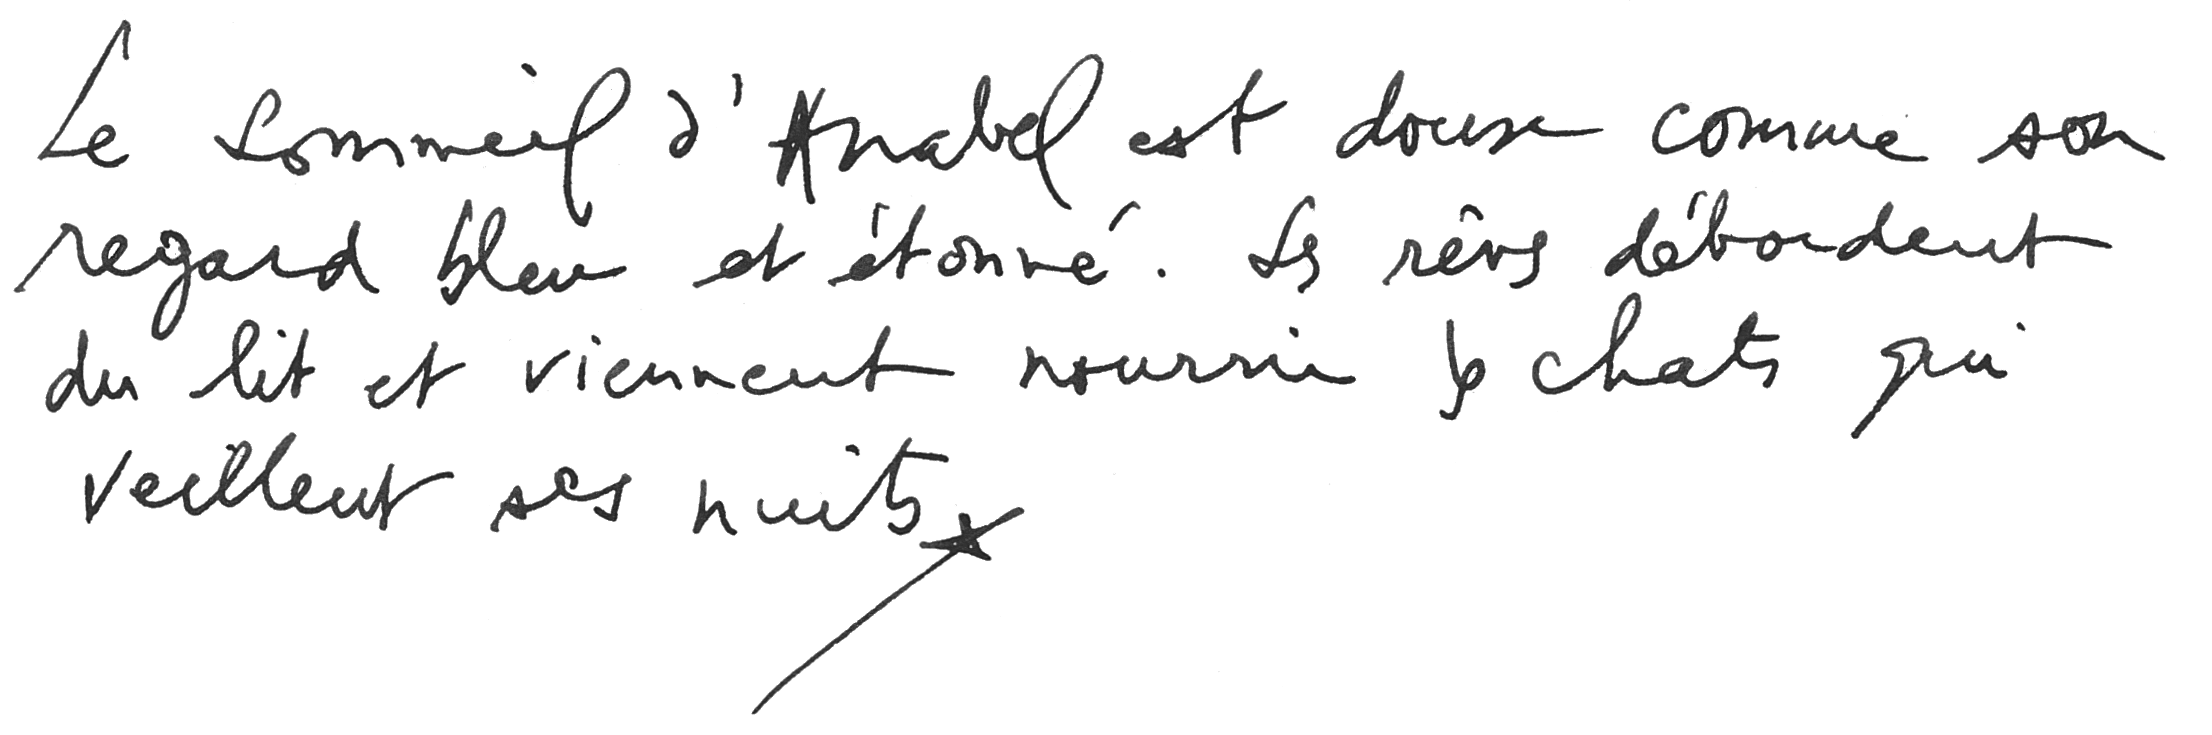 Le sommeil d'Anabel est doux comme son
regard bleu et étonné. Ses rêves débordent
du lit et viennent nourrir les chats qui
veillent ses nuits